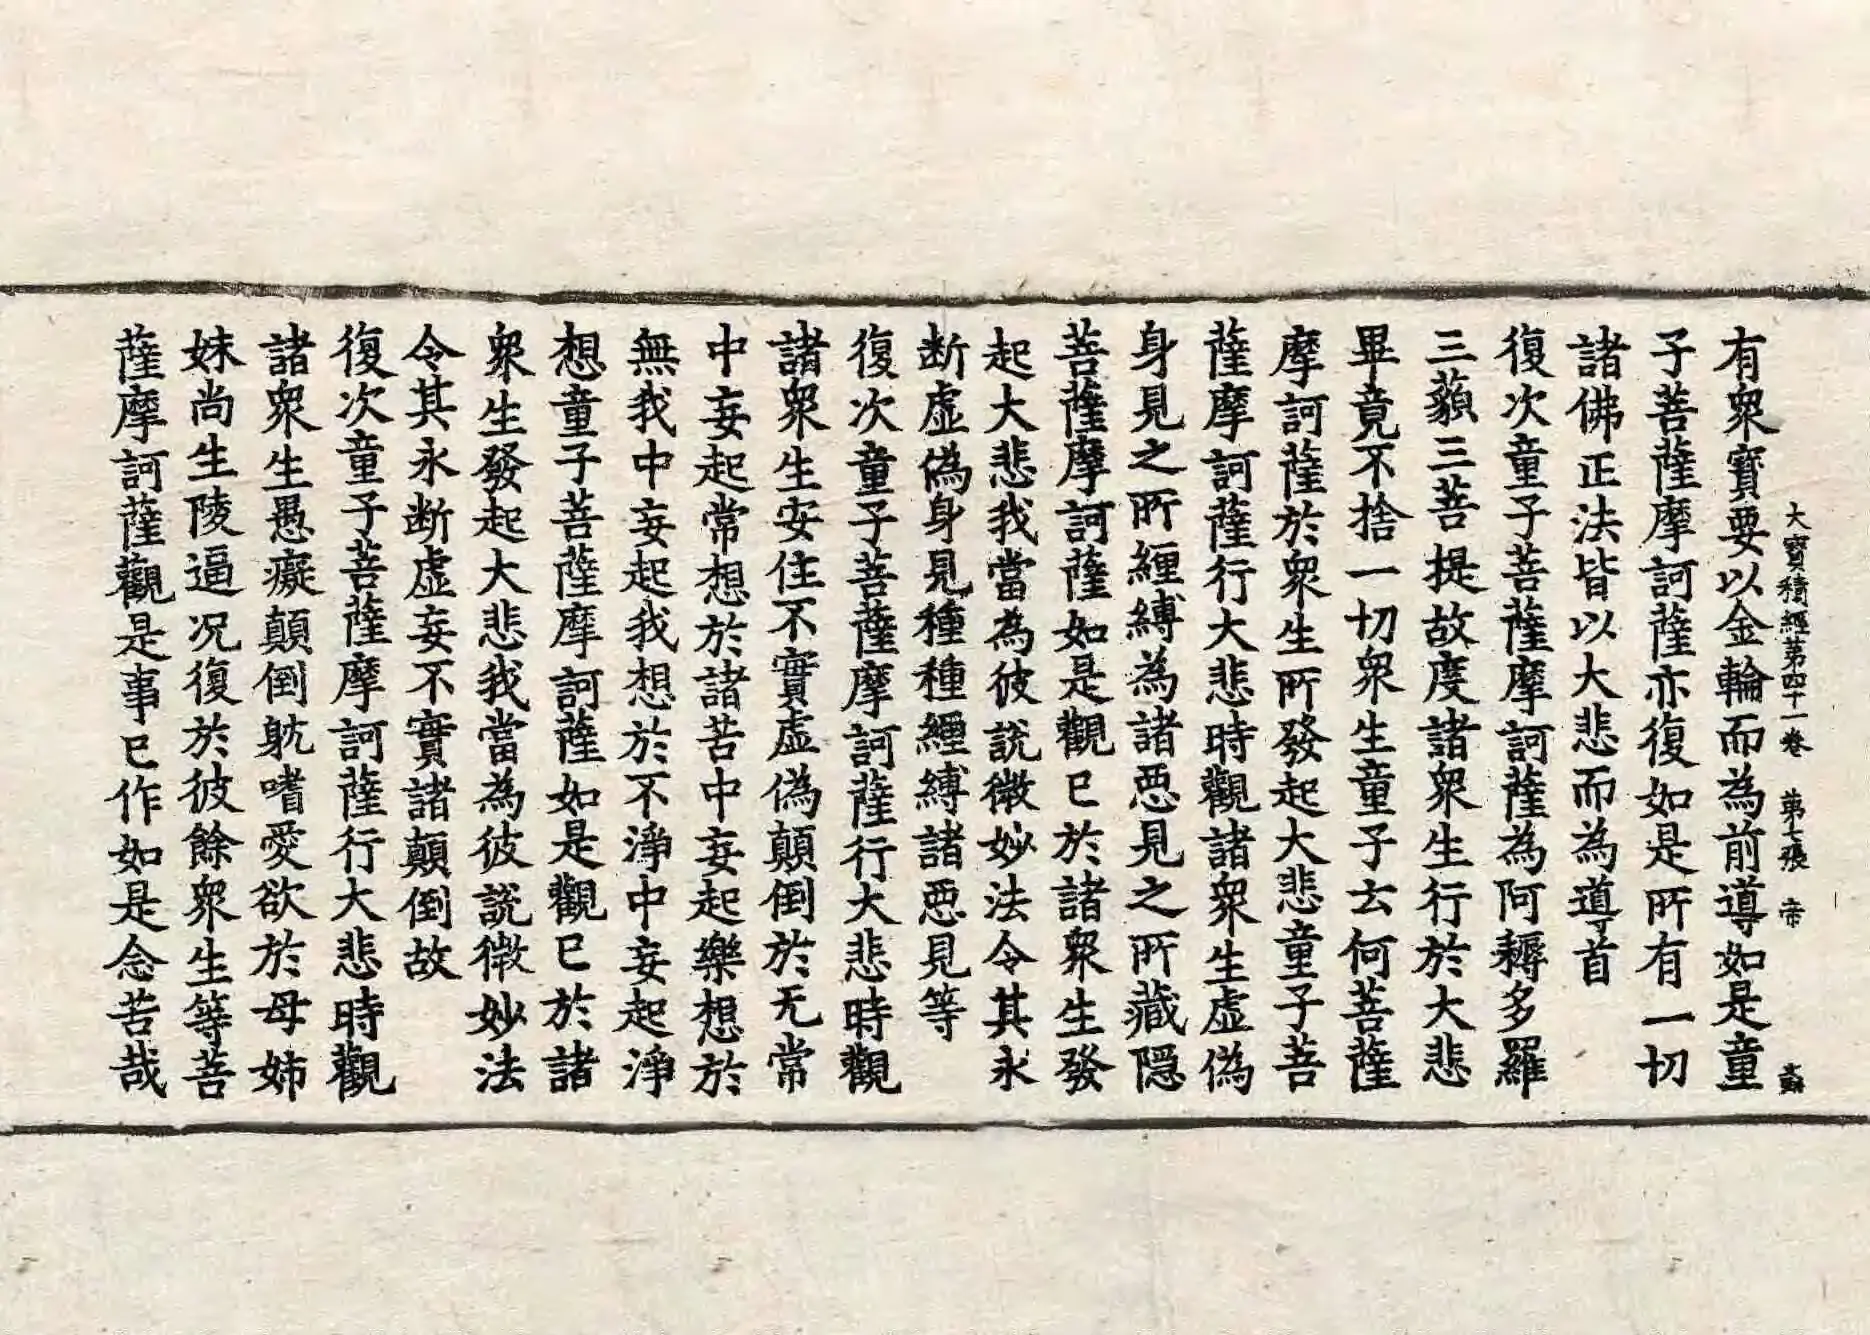 大寶積經第四十一卷　第七張　帝
有衆寶要以金輪而為前導如是童
子菩薩摩訶薩亦復如是所有一切
諸佛正法皆以大悲而為導首
復次童子菩薩摩訶薩為阿耨多羅
三藐三菩提故度諸衆生行於大悲
畢竟不捨一切衆生童子云何菩薩
摩訶薩於衆生所發起大悲童子菩
薩摩訶薩行大悲時觀諸衆生虛偽
身見之所纏縛為諸惡見之所藏隱
菩薩摩訶薩如是觀已於諸衆生發
起大悲我當為彼說微妙法令其永
断虛偽身見種種纏縛諸惡見等
復次童子菩薩摩訶薩行大悲時觀
諸衆生安住不實虛偽顛倒於无常
中妄起常想於諸苦中妄起樂想於
無我中妄起我想於不淨中妄起淨
想童子菩薩摩訶薩如是觀已於諸
衆生發起大悲我當為彼說微妙法
令其永断虛妄不實諸顛倒故
復次童子菩薩摩訶薩行大悲時觀
諸衆生愚癡顛倒躭嗜愛欲於母姊
妹尚生陵逼况復於彼餘衆生等菩
薩摩訶薩觀是事已作如是念苦哉